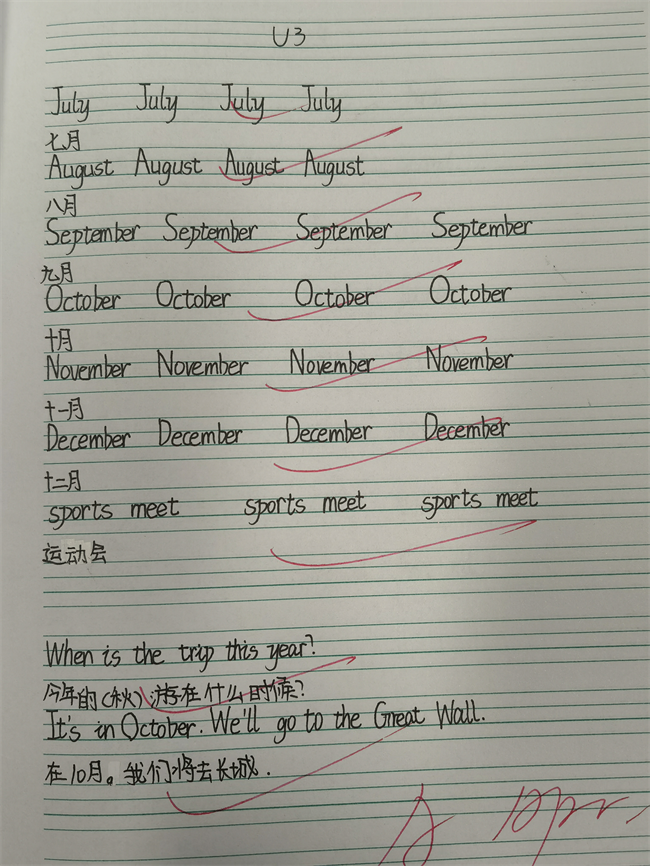 U3
July July July July
七月
August August August August
八月
September September September September
九月
October October October October
十月
November November November November
十一月
December December December December
十二月
sports meet sports meet sports meet
运动会
When is the trip this year?
今年的(秋)游在什么时候?
It's in October. We'll go to the Great Wall.
在10月。我们将去长城.